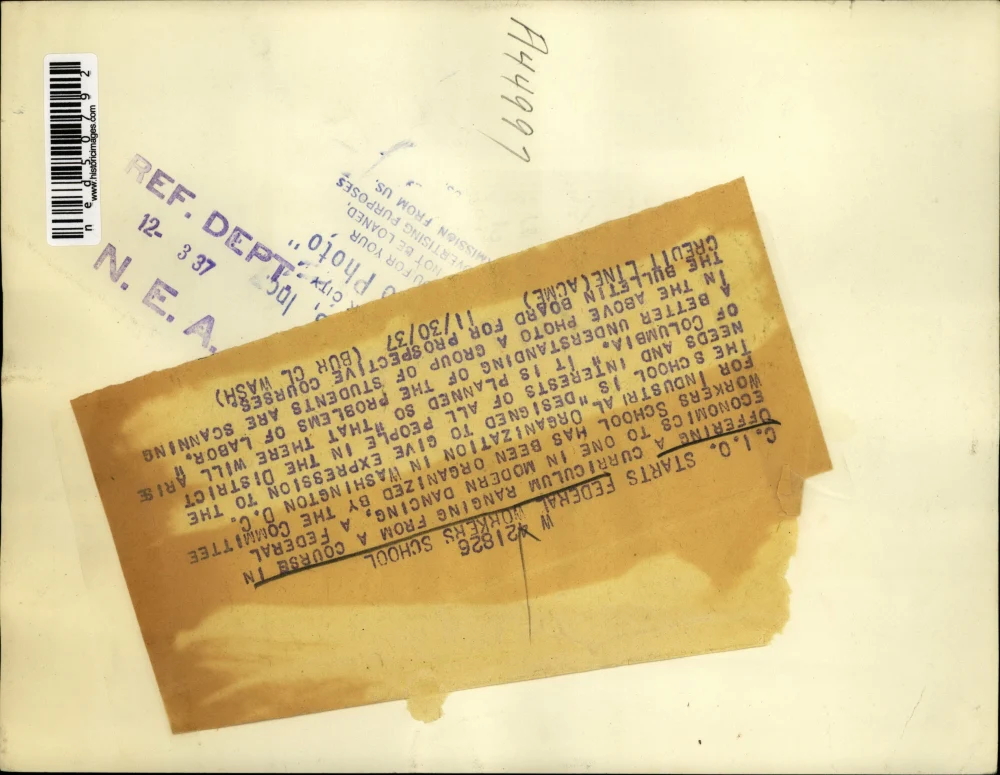 A44997
ned50792
www.historicimages.com
REF. DEPT.
12- 3 37
N. E. A.
Photo
U FOR YOUR
NOT BE LOANED,
VERTISING PURPOSES
MISSION FROM US.
W 421826
C.I.O. STARTS FEDERAL WORKERS SCHOOL
OFFERING A CURRICULUM RANGING FROM A COURSE IN
ECONOMICS TO ONE IN MODERN DANCING, A FEDERAL
WORKERS SCHOOL HAS BEEN ORGANIZED BY THE COMMITTEE
FOR INDUSTRIAL ORGANIZATION IN WASHINGTON D.C.
THE SCHOOL IS "DESIGNED TO GIVE EXPRESSION TO THE
NEEDS AND INTERESTS OF ALL PEOPLE IN THE DISTRICT
OF COLUMBIA." IT IS PLANNED SO "THAT THERE WILL ARISE
A BETTER UNDERSTANDING OF THE PROBLEMS OF LABOR."
IN THE ABOVE PHOTO A GROUP OF STUDENTS ARE SCANNING
THE BULLETIN BOARD FOR PROSPECTIVE COURSES.
CREDIT LINE(ACME) 11/30/37 (BUR CL WASH)